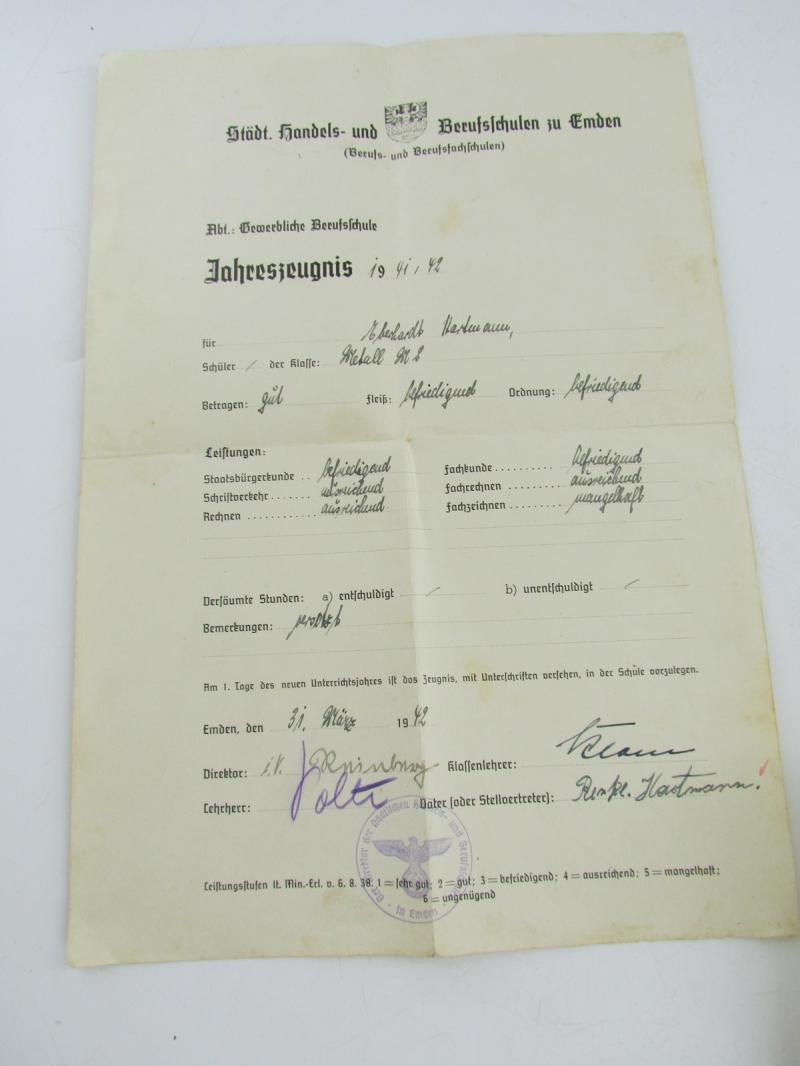 Städt. Handels- und Berufsschulen zu Emden
(Berufs- und Berufsfachschulen)
Abt.: Gewerbliche Berufsschule
Jahreszeugnis 1941/42
für Eberhardt Hartmann,
Schüler / der Klasse: Metall M 2
Betragen: gut Fleiß: befriedigend Ordnung: befriedigend
Leistungen:
Staatsbürgerkunde .. befriedigend Fachkunde .......... befriedigend
Schriftverkehr ....... ausreichend Fachrechnen ......... ausreichend
Rechnen ............ ausreichend Fachzeichnen ......... mangelhaft
Versäumte Stunden: a) entschuldigt / b) unentschuldigt /
Bemerkungen: versetzt
Am 1. Tage des neuen Unterrichtsjahres ist das Zeugnis, mit Unterschriften versehen, in der Schule vorzulegen.
Emden, den 31. März 1942
Direktor: i.V. Klassenlehrer:
Lehrherr: Vater (oder Stellvertreter): Hartmann.
Leistungsstufen lt. Min.-Erl. v. 6. 8. 38: 1 = sehr gut; 2 = gut; 3 = befriedigend; 4 = ausreichend; 5 = mangelhaft;
6 = ungenügend
in Emden